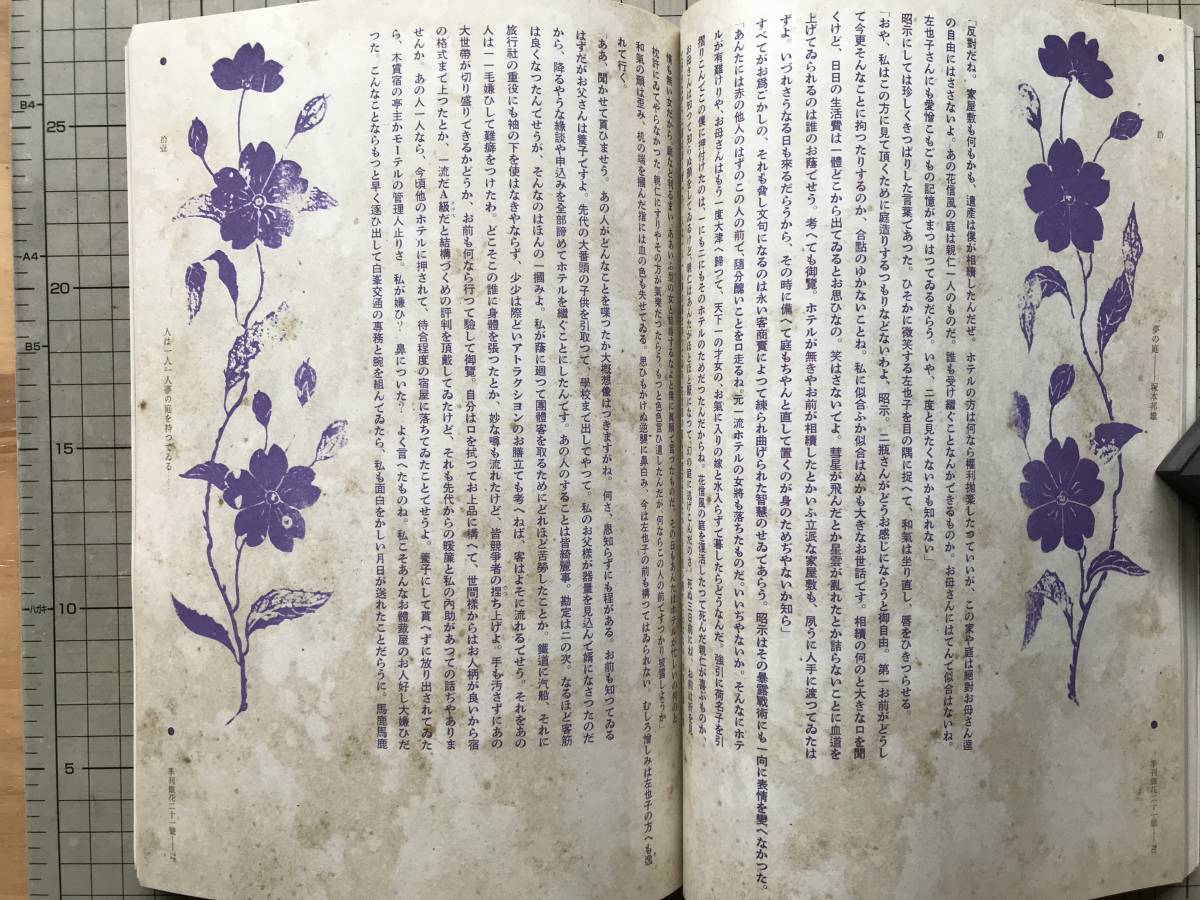 拾
夢の庭──塚本邦雄
「反對だね。家屋敷も何もかも、遺產は僕が相續したんだぜ。ホテルの方は何なら權利抛棄したつていいが、この家や庭は絕對お母さん達
の自由にはささないよ。あの花信風の庭は親仁一人のものだ。誰も受け繼ぐことなんかできるものか。お母さんにはてんで似合はないね。
左也子さんにも愛憎こもごもの記憶がまつはつてゐるだらう。いや、二度と見たくないかも知れない」
昭示にしては珍しくきつぱりした言葉であつた。ひそかに微笑する左也子を目の隅に捉へて、和氣は坐り直し、唇をひきつらせる。
「おや、私はこの方に見て頂くために庭造りするつもりなどないわよ、昭示。二瓶さんがどうお感じにならうと御自由。第一お前がどうし
て今更そんなことに拘つたりするのか、合點のゆかないことね。私に似合ふか似合はぬかも大きなお世話です。相續の何のと大きな口を聞
くけど、日日の生活費は一體どこから出てゐるとお思ひなの。笑はさないでよ。彗星が飛んだとか星雲が亂れたとか詰らないことに血道を
上げてゐられるのは誰のお蔭でせう。考へても御覽。ホテルが無きやお前が相續したとかいふ立派な家屋敷も、夙うに人手に渡つてゐたは
ずよ。いづれさうなる日も來るだらうから、その時に備へて庭もちやんと直して置くのが身のためぢやないか知ら」
すべてがお爲ごかしの、それも脅し文句になるのは永い客商賣によつて練られ曲げられた智慧のせゐであらう。昭示はその暴露戰術にも一向に表情を變へなかつた。
「あんたには赤の他人のはずのこの人の前で、隨分醜いことを口走るね。元一流ホテルの女將も落ちたものだ。いいぢやないか。そんなにホテ
ルが有難けりや、お母さんはもう一度大津へ歸つて、天下一の才女の、お氣に入りの嫁と水入らずで暮したらどうなんだ。強引に荷名子を引
摺りこんでこの僕に押付けたのは、一にも二にもそのホテルのためだつたんだからね。花信風の庭を復活したつて死んだ親仁が喜ぶものか。
季刊銀花二十一號──
和氣の顏は歪み、机の端を摑んだ指には血の色も失せてゐる。思ひもかけぬ逆襲に鼻白み、今は左也子の前も構つてはゐられない。むしろ憎しみは左也子の方へも逸
れて行く。
「ああ、聞かせて貰ひませう。あの人がどんなことを喋つたか大槪想像はつきますがね。何さ、恩知らずにも程がある。お前も知つてゐる
はずだがお父さんは養子ですよ。先代の大番頭の子供を引取つて、學校まで出してやつて。私のお父樣が器量を見込んで婿になさつたのだ
から、降るやうな緣談や申込みを全部諦めてホテルを繼ぐことにしたんです。あの人のすることは皆綺麗事。勘定は二の次。なるほど客筋
は良くなつたんでせうが、そんなのはほんの一摑みよ。私が蔭に廻つて團體客を取るためにどれほど苦勞したことか。鐵道に汽船、それに
旅行社の重役にも袖の下を使はなきやならず、少少は際どいアトラクシヨンのお膳立ても考へねば、客はよそに流れるでせう。それをあの
人は一一毛嫌ひして難癖をつけたわ。どこそこの誰に身體を張つたとか、妙な噂も流れたけど、皆競爭者の捏ち上げよ。手も汚さずにあの
大世帶が切り盛りできるかどうか、お前も何なら行つて驗して御覽。自分は口を拭つてお上品に構へて、世間樣からはお人柄が良いから宿
の格式まで上つたとか、一流だA級だと結構づくめの評判を頂戴してゐたけど、それも先代からの暖簾と私の內助があつての話ぢやありま
せんか。あの人一人なら、今頃他のホテルに押されて、待合程度の宿屋に落ちてゐたことでせうよ。養子にして貰へずに放り出されてゐた
ら、木賃宿の亭主かモーテルの管理人止りさ。私が嫌ひ?　鼻についた?　よく言へたものね。私こそあんなお體裁屋のお人好し大嫌ひだ
つた。こんなことならもつと早く逐ひ出して白峯交通の專務と腕を組んでゐたら、私も面白をかしい月日が送れたことだらうに。馬鹿馬鹿
人は一人一人夢の庭を持つてゐる
拾壹
季刊銀花二十一號──
B4
25
A4
20
B5
15
ハガキ
10
5